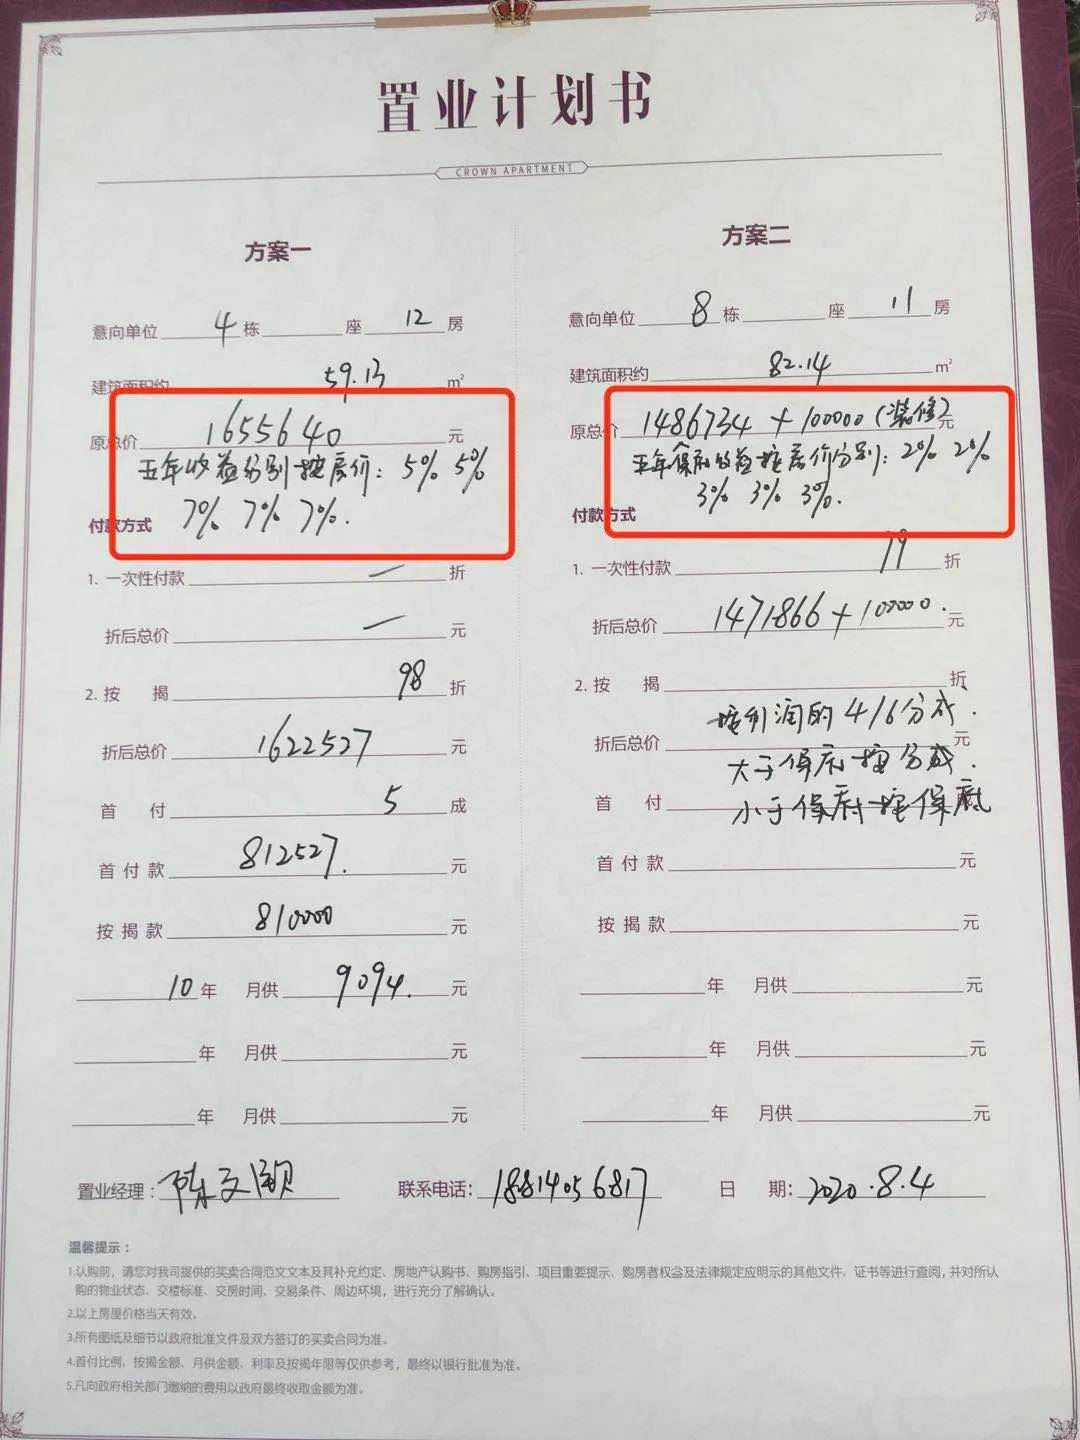 置业计划书
CROWN APARTMENT
方案一
意向单位 4 栋 座 12 房
建筑面积约 59.13 m²
原总价 1655640 元
五年收益分别按房价：5% 5%
7% 7% 7%.
付款方式
1. 一次性付款 — 折
折后总价 — 元
2. 按 揭 98 折
折后总价 1622527 元
首 付 5 成
首 付 款 812527. 元
按 揭 款 810000 元
10 年 月供 9094. 元
年 月供 元
年 月供 元
方案二
意向单位 8 栋 座 11 房
建筑面积约 82.14 m²
原总价 1486734 + 100000 (装修) 元
五年保底收益按房价分别：2% 2%
3% 3% 3%.
付款方式
1. 一次性付款 99 折
折后总价 1471866 + 100000. 元
2. 按 揭 折
按利润的 4/6分成.
折后总价 元
大于保底按分成.
首 付
小于保底按保底
首 付 款 元
按 揭 款 元
年 月供 元
年 月供 元
年 月供 元
置业经理：陈文颖 联系电话：18814056817 日 期：2020.8.4
温馨提示：
1.认购前，请您对我司提供的买卖合同范文文本及其补充约定、房地产认购书、购房指引、项目重要提示、购房者权益及法律规定应明示的其他文件、证书等进行查阅，并对所认
购的物业状态、交楼标准、交房时间、交易条件、周边环境，进行充分了解确认。
2.以上房屋价格当天有效。
3.所有图纸及细节以政府批准文件及双方签订的买卖合同为准。
4.首付比例、按揭金额、月供金额、利率及按揭年限等仅供参考，最终以银行批准为准。
5.凡向政府相关部门缴纳的费用以政府最终收取金额为准。